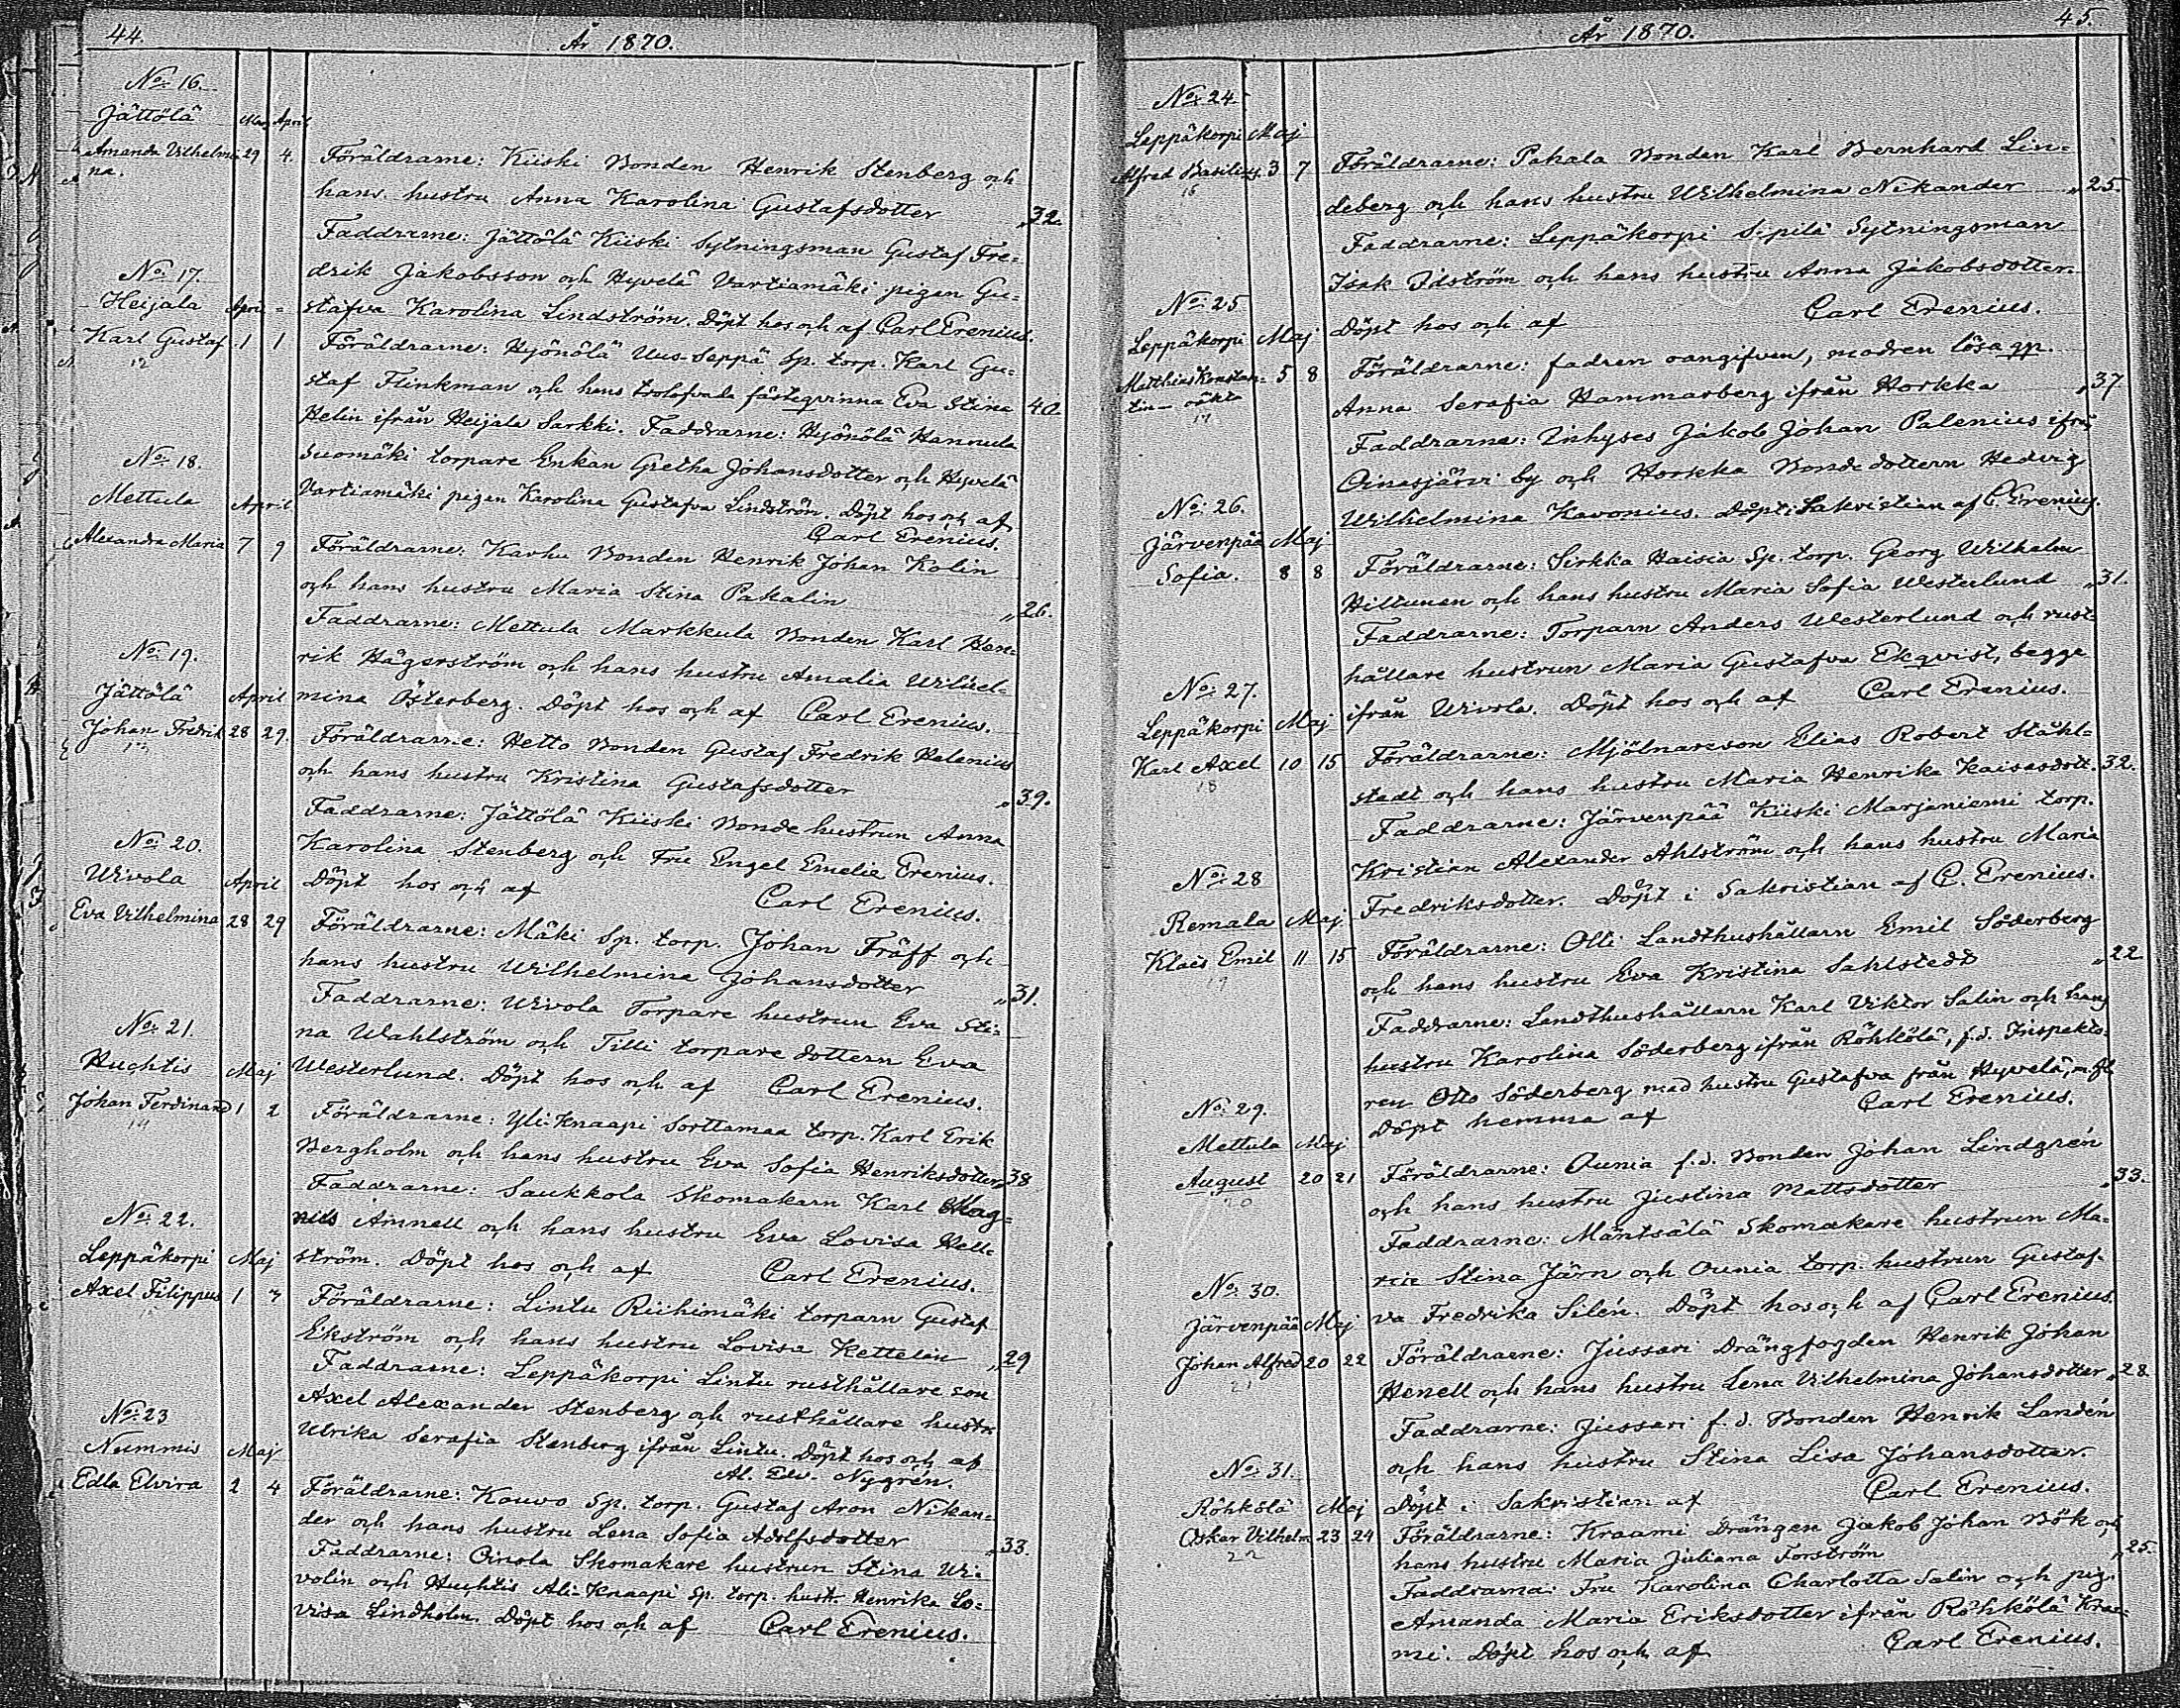 44.
År 1870.
No: 16.
Jättölä Mars April
Amanda Vilhelmi- 29 4.
na.
Föräldrarne: Kiiski Bonden Henrik Stenberg och
hans hustru Anna Karolina Gustafsdotter „32.
Faddrarne: Jättölä Kiiski Sytningsman Gustaf Fre-
drik Jakobsson och Hyvelä Vartiamäki pigan Gu-
stafva Karolina Lindström. Döpt hos och af Carl Erenius.
No: 17.
Heijala April -
Karl Gustaf 1 1
12
Föräldrarne: Hyönölä Uus-Seppä Sp. torp. Karl Gu-
staf Flinkman och hans trolofvade fästeqvinna Eva Stina 40.
Helin ifrån Heijala Sarkki. Faddrarne: Hyönölä Hannula
Suomäki torpare Enkan Gretha Johansdotter och Hyvelä
Vartiamäki pigan Karolina Gustafva Lindström. Döpt hos och af
Carl Erenius.
No: 18.
Mettula April
Alexandra Maria 7 9
Föräldrarne: Karhu Bonden Henrik Johan Kolin
och hans hustru Maria Stina Pakalin „26.
Faddrarne: Mettula Markkula Bonden Karl Hen-
rik Hägerström och hans hustru Amalia Wilhel-
mina Österberg. Döpt hos och af Carl Erenius.
No: 19.
Jättölä April
Johan Fredrik 28 29.
13
Föräldrarne: Hetto Bonden Gustaf Fredrik Helenius
och hans hustru Kristina Gustafsdotter „39.
Faddrarne: Jättölä Kiiski Bonde hustrun Anna
Karolina Stenberg och Fru Engel Emelie Erenius.
Döpt hos och af Carl Erenius.
No: 20.
Uivola April
Eva Vilhelmina 28 29
Föräldrarne: Mäki Sp. torp. Johan Träff och
hans hustru Wilhelmina Johansdotter „31.
Faddrarne: Uivola Torpare hustrun Eva Sti-
na Wahlström och Tilli torpare dottern Eva
Westerlund. Döpt hos och af Carl Erenius.
No: 21.
Huchtis Maj
Johan Ferdinand 1 2
14
Föräldrarne: Yli-Knaapi Sorttamaa torp. Karl Erik
Bergholm och hans hustru Eva Sofia Henriksdotter „38
Faddrarne: Saukkola Skomakarn Karl Mag-
nus Annell och hans hustru Eva Lovisa Hell-
ström. Döpt hos och af Carl Erenius.
No: 22.
Leppäkorpi Maj
Axel Filippus 1 3
Föräldrarne: Lintu Riihimäki torparn Gustaf
Ekström och hans hustru Lovisa Kettelin „29
Faddrarne: Leppäkorpi Lintu rusthållare son
Axel Alexander Stenberg och rusthållare hustr.
Ulrika Serafia Stenberg ifrån Lintu. Döpt hos och af
Al. Edv. Nygrén.
No: 23
Nummis Maj
Edla Elvira 2 4
Föräldrarne: Kouvo Sp. torp. Gustaf Aron Nikan-
der och hans hustru Lena Sofia Adolfsdotter „33.
Faddrarne: Oinola Skomakare hustrun Stina Ui-
volin och Huchtis Ali-Knaapi Sp. torp. hustr. Henrika Lo-
visa Lindholm. Döpt hos och af Carl Erenius.
45.
År 1870.
No: 24
Leppäkorpi Maj
Alfred Basilius. 3 7
16
Föräldrarne: Pakala Bonden Karl Bernhard Lin-
deberg och hans hustru Wilhelmina Nikander „25.
Faddrarne: Leppäkorpi Sipilä Sytningsman
Isak Idström och hans hustru Anna Jakobsdotter
Döpt hos och af Carl Erenius.
No: 25
Leppäkorpi Maj
Matthias Konstan- 5 8
tin - oäkta
17
Föräldrarne: fadren oangifven, modren lösa qp.
Anna Serafia Hammarberg ifrån Horkka „37
Faddrarna: Inhyses Jakob Johan Palenius ifrån
Oinasjärvi by och Horkka Bonde dottern Hedvig
Wilhelmina Kavonius. Döpt i Sakristian af C. Erenius.
No: 26.
Järvenpää Maj
Sofia. 8 8
Föräldrarne: Sirkka Haisia Sp. torp. Georg Wilhelm
Hiltunen och hans hustru Maria Sofia Westerlund „31.
Faddrarne: Torparn Anders Westerlund och rust-
hållare hustrun Maria Gustafva Ekqvist, begge
ifrån Uivola. Döpt hos och af Carl Erenius.
No: 27.
Leppäkorpi Maj
Karl Axel 10 15
18
Föräldrarne: Mjölnareson Elias Robert Ståhl-
stedt och hans hustru Maria Henrika Kaisasdott. 32.
Faddrarne: Järvenpää Kiiski Marjaniemi torp.
Kristian Alexander Ahlström och hans hustru Maria
Fredriksdotter. Döpt i Sakristian af C. Erenius.
No: 28
Remala Maj
Klaës Emil 11 15
19
Föräldrarne: Olli Landthushållarn Emil Söderberg
och hans hustru Eva Kristina Sahlstedt „22.
Faddrarne: Landthushållarn Karl Viktor Salin och hans
hustru Karolina Söderberg ifrån Röhkölä, f.d. Inspekto-
ren Otto Söderberg med hustru Gustafva från Hyvelä, m.fl.
Döpt hemma af Carl Erenius.
No: 29.
Mettula Maj
August 20 21
20
Föräldrarne: Ounia f.d. Bonden Johan Lindgrén
och hans hustru Justina Mattsdotter „33.
Faddrarne: Mäntsälä Skomakare hustrun Ma-
ria Stina Järn och Ounia torp. hustrun Gustaf-
va Fredrika Silén. Döpt hos och af Carl Erenius.
No: 30.
Järvenpää Maj
Johan Alfred 20 22
21
Föräldrarne: Jussari Drängfogden Henrik Johan
Henell och hans hustru Lena Vilhelmina Johansdotter „28
Faddrarne: Jussari f.d. Bonden Henrik Landén
och hans hustru Stina Lisa Johansdotter.
Döpt i Sakristian af Carl Erenius.
No: 31.
Röhkölä Maj
Oskar Vilhelm 23 24
22
Föräldrarne: Kraami Drängen Jakob Johan Bök och
hans hustru Maria Juliana Forström „25.
Faddrarna: Fru Karolina Charlotta Salin och pig.
Amanda Maria Eriksdotter ifrån Röhkölä Kraa-
mi. Döpt hos och af Carl Erenius.